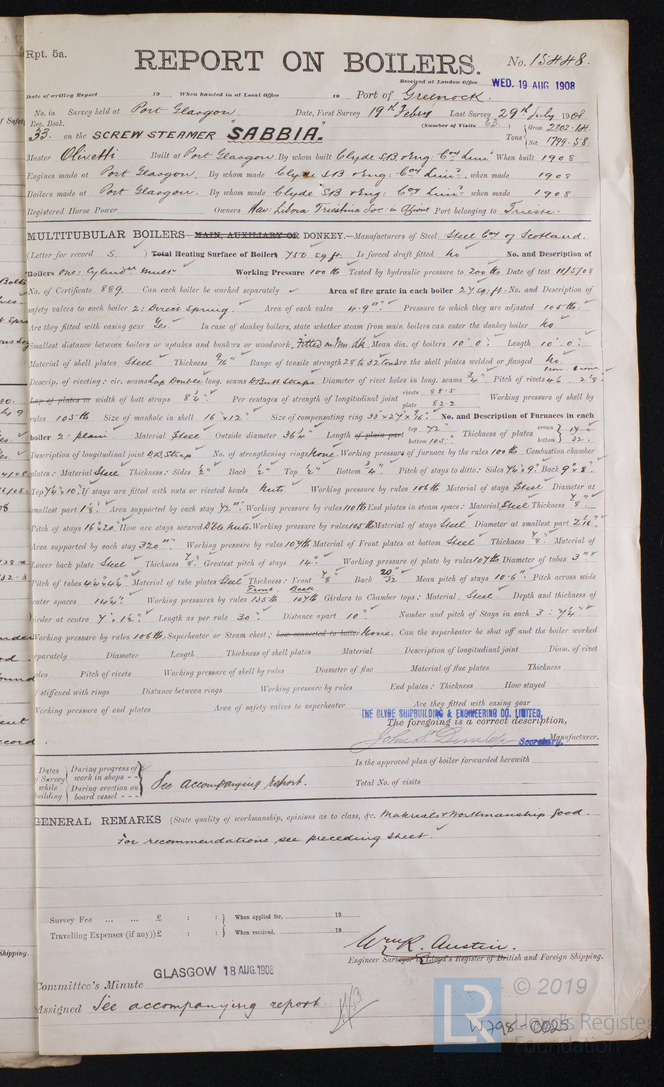 Rpt. 5a.
REPORT ON BOILERS.
No. 15448.
Received at London Office WED. 19 AUG 1908
Date of writing Report 19 When handed in at Local Office 19 Port of Greenock.
No. in Survey held at Port Glasgow. Date, First Survey 19th Feby Last Survey 29th July 1908
Reg. Book. (Number of Visits 63)
33. on the SCREW STEAMER "SABBIA." Tons Gross 2802.14
Net 1799.58.
Master Olivetti Built at Port Glasgow By whom built Clyde S.B. & Eng: Coy Limd. When built 1908
Engines made at Port Glasgow. By whom made Clyde S.B & Eng: Coy Limd. when made 1908
Boilers made at Port Glasgow. By whom made Clyde SB & Eng: Coy Limd. when made 1908.
Registered Horse Power Owners Nav: Libera Triestina Soc: in Azioni Port belonging to Trieste.
MULTITUBULAR BOILERS MAIN, AUXILIARY OR DONKEY.—Manufacturers of Steel Steel Coy of Scotland.
(Letter for record S.) Total Heating Surface of Boilers 750 sq. ft. Is forced draft fitted No No. and Description of
Boilers One: Cylindr Mult Working Pressure 100 lb Tested by hydraulic pressure to 200 lbs Date of test 11/5/08
No. of Certificate 889. Can each boiler be worked separately Area of fire grate in each boiler 27 sq. ft. No. and Description of
safety valves to each boiler 2: Direct Spring. Area of each valve 4.9 Pressure to which they are adjusted 105 lb.
Are they fitted with easing gear Yes In case of donkey boilers, state whether steam from main boilers can enter the donkey boiler No.
Smallest distance between boilers or uptakes and bunkers or woodwork Mean dia. of boilers 10' 0" Length 10' 0"
Material of shell plates Steel Thickness 9/16" Range of tensile strength 28 to 32 tons Are the shell plates welded or flanged No.
Descrip. of riveting: cir. seams Lap Double long. seams D Butt Straps. Diameter of rivet holes in long. seams 3/4" Pitch of rivets
Lap of plates or width of butt straps 8 1/2" Per centages of strength of longitudinal joint rivets 88.5 plate 82.2 Working pressure of shell by
rules 105 lb Size of manhole in shell 16" x 12" Size of compensating ring No. and Description of Furnaces in each
boiler 2: plain Material Steel Outside diameter 36 1/4" Length of plain part top 72" bottom 105" Thickness of plates crown bottom
Description of longitudinal joint DB Strap No. of strengthening rings None. Working pressure of furnace by the rules 100 lb Combustion chamber
plates: Material Steel Thickness: Sides 1/2" Back 1/2" Top 1/2" Bottom 3/4" Pitch of stays to ditto: Sides Back 9" x 8"
Top If stays are fitted with nuts or riveted heads Nuts. Working pressure by rules 106 lb Material of stays Steel Diameter at
smallest part Area supported by each stay 72" Working pressure by rules 110 lb End plates in steam space: Material Steel Thickness 7/8
Pitch of stays 16 x 20 How are stays secured Dble Nuts. Working pressure by rules 105 lb Material of stays Steel Diameter at smallest part
Area supported by each stay 320 Working pressure by rules 107 lb Material of Front plates at bottom Steel Thickness 7/8" Material of
Lower back plate Steel Thickness 7/8" Greatest pitch of stays 14" Working pressure of plate by rules 107 lb Diameter of tubes 3"
Pitch of tubes Material of tube plates Steel Thickness: Front 7/8" Back 20/32 Mean pitch of stays 10.6" Pitch across wide
water spaces 14 1/2" Working pressures by rules Front 135 lb Back 107 lb Girders to Chamber tops: Material Steel. Depth and thickness of
girder at centre Length as per rule 30" Distance apart 10" Number and pitch of Stays in each 3: 7 1/4"
Working pressure by rules 106 lb: Superheater or Steam chest; how connected to boiler None. Can the superheater be shut off and the boiler worked
separately Diameter Length Thickness of shell plates Material Description of longitudinal joint Diam. of rivet
holes Pitch of rivets Working pressure of shell by rules Diameter of flue Material of flue plates Thickness
If stiffened with rings Distance between rings Working pressure by rules End plates: Thickness How stayed
Working pressure of end plates Area of safety valves to superheater Are they fitted with easing gear
THE CLYDE SHIPBUILDING & ENGINEERING CO. LIMITED,
The foregoing is a correct description,
Secretary. Manufacturer.
Dates of Survey while building During progress of work in shops - - During erection on board vessel - - - See accompanying report.
Is the approved plan of boiler forwarded herewith
Total No. of visits
GENERAL REMARKS (State quality of workmanship, opinions as to class, &c. Materials & Workmanship good.
For recommendations see preceding sheet.
Survey Fee ... ... £ : : When applied for, 19
Travelling Expenses (if any) £ : : When received, 19
Wm R. Austin.
Engineer Surveyor to Lloyd's Register of British and Foreign Shipping.
Committee's Minute GLASGOW 18 AUG. 1908
Assigned See accompanying report.
LR © 2019
Lloyd's Register
Foundation
W798-0025